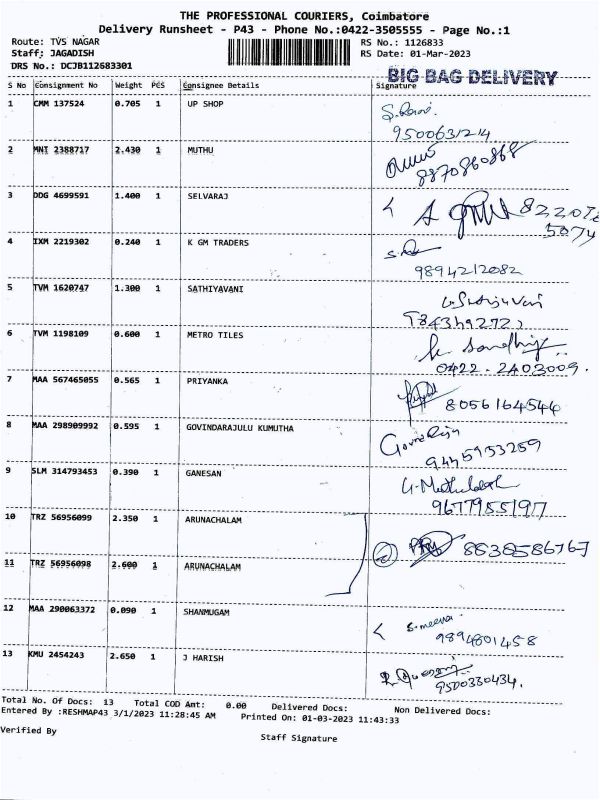 THE PROFESSIONAL COURIERS, Coimbatore
Delivery Runsheet - P43 - Phone No.:0422-3505555 - Page No.:1
Route: TVS NAGAR RS No.: 1126833
Staff: JAGADISH RS Date: 01-Mar-2023
DRS No.: DCJB112683301
BIG BAG DELIVERY
S No Consignment No Weight PCS Consignee Details Signature
1 CMM 137524 0.705 1 UP SHOP
9500631214
2 MNI 2388717 2.430 1 MUTHU
8870860868
3 DDG 4699591 1.400 1 SELVARAJ
5074
4 IXM 2219302 0.240 1 K GM TRADERS
9894212082
5 TVM 1620747 1.300 1 SATHIYAVANI
6 TVM 1198109 0.600 1 METRO TILES
0422-2403009.
7 MAA 567465055 0.565 1 PRIYANKA
8056164544
8 MAA 298909992 0.595 1 GOVINDARAJULU KUMUTHA
9445953259
9 SLM 314793453 0.390 1 GANESAN
9677955197
10 TRZ 56956099 2.350 1 ARUNACHALAM
2 8838586767
11 TRZ 56956098 2.600 1 ARUNACHALAM
12 MAA 290063372 0.090 1 SHANMUGAM
S.meena
9894801458
13 KMU 2454243 2.650 1 J HARISH
9500330434.
Total No. Of Docs: 13 Total COD Amt: 0.00 Delivered Docs: Non Delivered Docs:
Entered By :RESHMAP43 3/1/2023 11:28:45 AM Printed On: 01-03-2023 11:43:33
Verified By Staff Signature